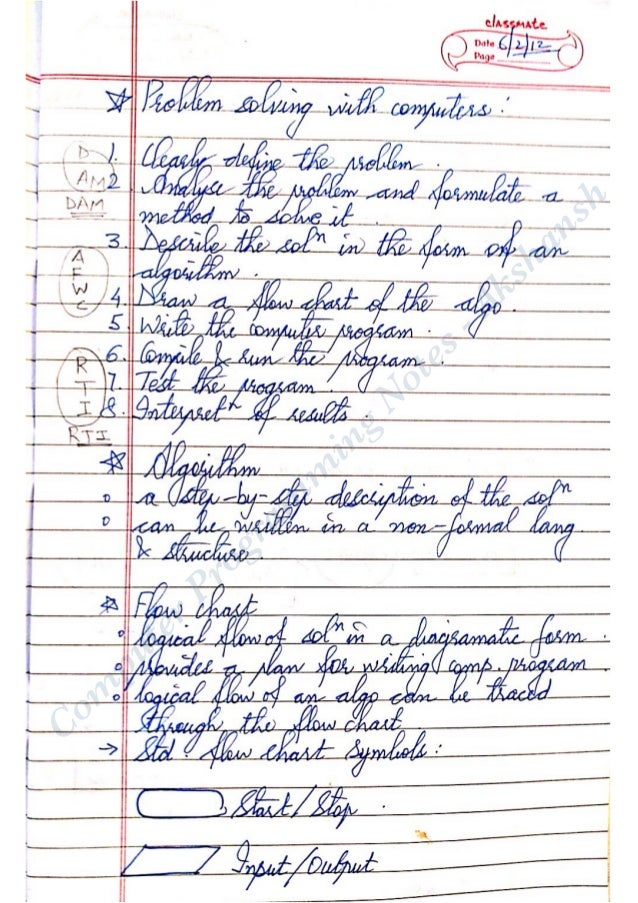 classmate
Date 6/2/12
Page
☆ Problem solving with computers:
D 1. Clearly define the problem.
AM 2. Analyse the problem and formulate a
DAM method to solve it.
3. Describe the solⁿ in the form of an
A algorithm.
F
W
C 4. Draw a flow chart of the algo.
5. Write the computer program.
R 6. Compile & run the program.
T 7. Test the program.
I 8. Interpretⁿ of results.
RTI
☆ Algorithm
o a step-by-step description of the solⁿ
o can be written in a non-formal lang
& structure.
☆ Flow chart
o logical flow of solⁿ in a diagramatic form.
o provides a plan for writing comp. program.
o logical flow of an algo can be traced
through the flow chart
→ Std. flow chart symbols:
Start/Stop.
Input/Output
Computer Programming Notes Akshansh